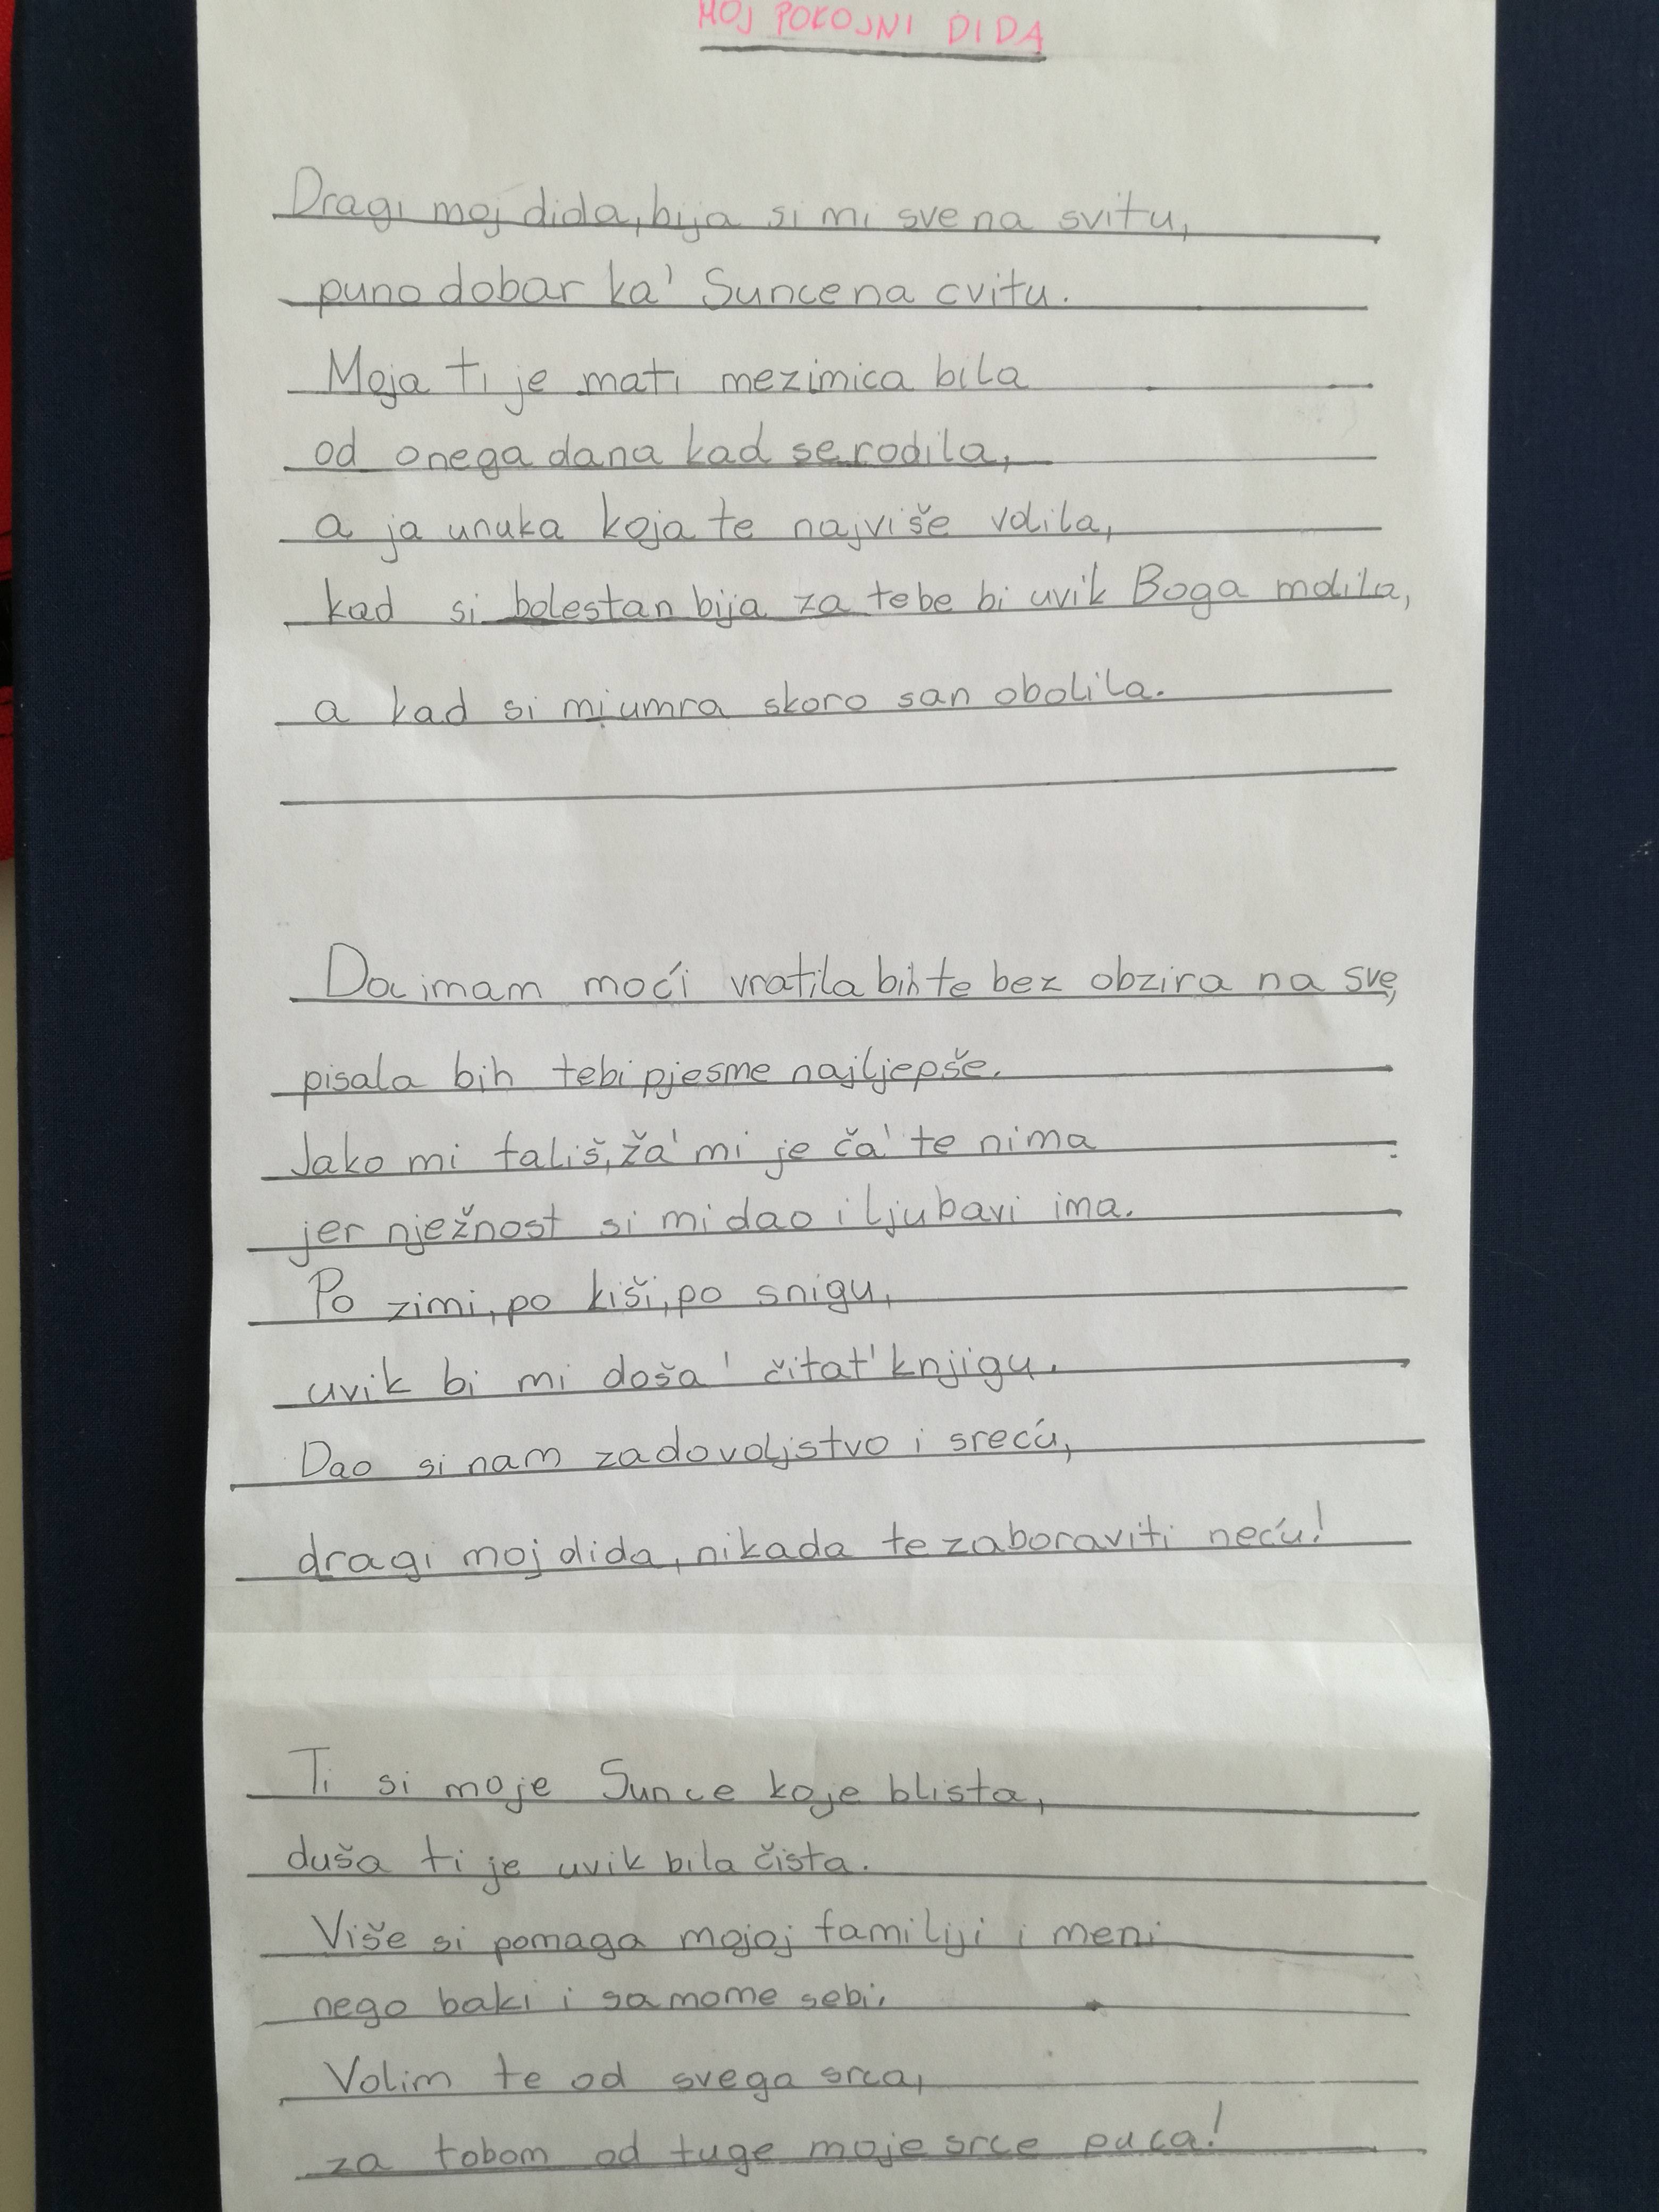 MOJ POKOJNI DIDA
Dragi moj dida, bija si mi sve na svitu,
puno dobar ka' Sunce na cvitu.
Moja ti je mati mezimica bila
od onega dana kad se rodila,
a ja unuka koja te najviše volila,
kad si bolestan bija za tebe bi uvik Boga molila,
a kad si mi umra skoro san obolila.
Da imam moći vratila bih te bez obzira na sve,
pisala bih tebi pjesme najljepše.
Jako mi fališ, ža' mi je ča' te nima
jer nježnost si mi dao i ljubavi ima.
Po zimi, po kiši, po snigu,
uvik bi mi doša' čitat' knjigu.
Dao si nam zadovoljstvo i sreću,
dragi moj dida, nikada te zaboraviti neću!
Ti si moje Sunce koje blista,
duša ti je uvik bila čista.
Više si pomaga mojoj familiji i meni
nego baki i samome sebi.
Volim te od svega srca,
za tobom od tuge moje srce puca!